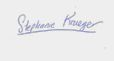 Stephanie Krueger